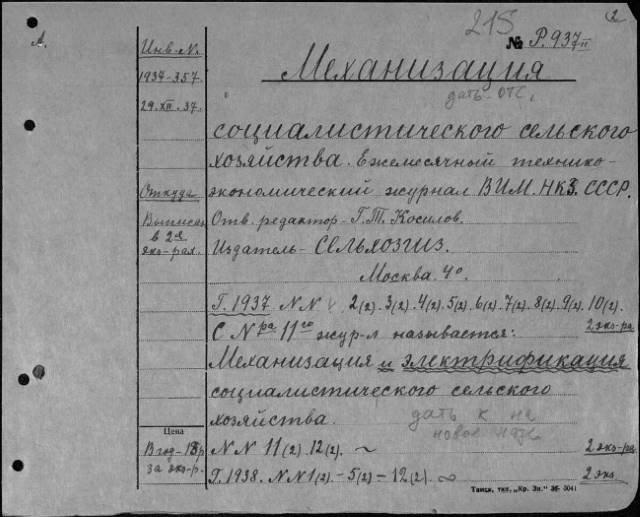 215 2
№ Р.937 VII
А.
Механизация
дать отс.
социалистического сельского
хозяйства. Ежемесячный технико-
экономический журнал ВИМ. НКЗ. СССР.
Отв. редактор - Г.Т. Косилов.
Издатель - Сельхозгиз.
Москва. 4°.
Г. 1937 N N 2(2). 3(2). 4(2). 5(2). 6(2). 7(2). 8(2). 9(2). 10(2).
2 экз-ра
С N ра 11 го жур-л называется:
Механизация и электрификация
социалистического сельского
хозяйства. дать к на
новое
N N 11(2). 12(2). ~ 2 экз-ра
Г. 1938. N N 1(2) - 5(2) - 12(2). ∞ 2 экз.
Инв. N.
1937-357.
29.XII.37.
Откуда
Выписан
в 2я
экз-рах.
Цена
В год - р
за экз-р.
Тамск. тип. „Кр. Зн." Зб. 5041